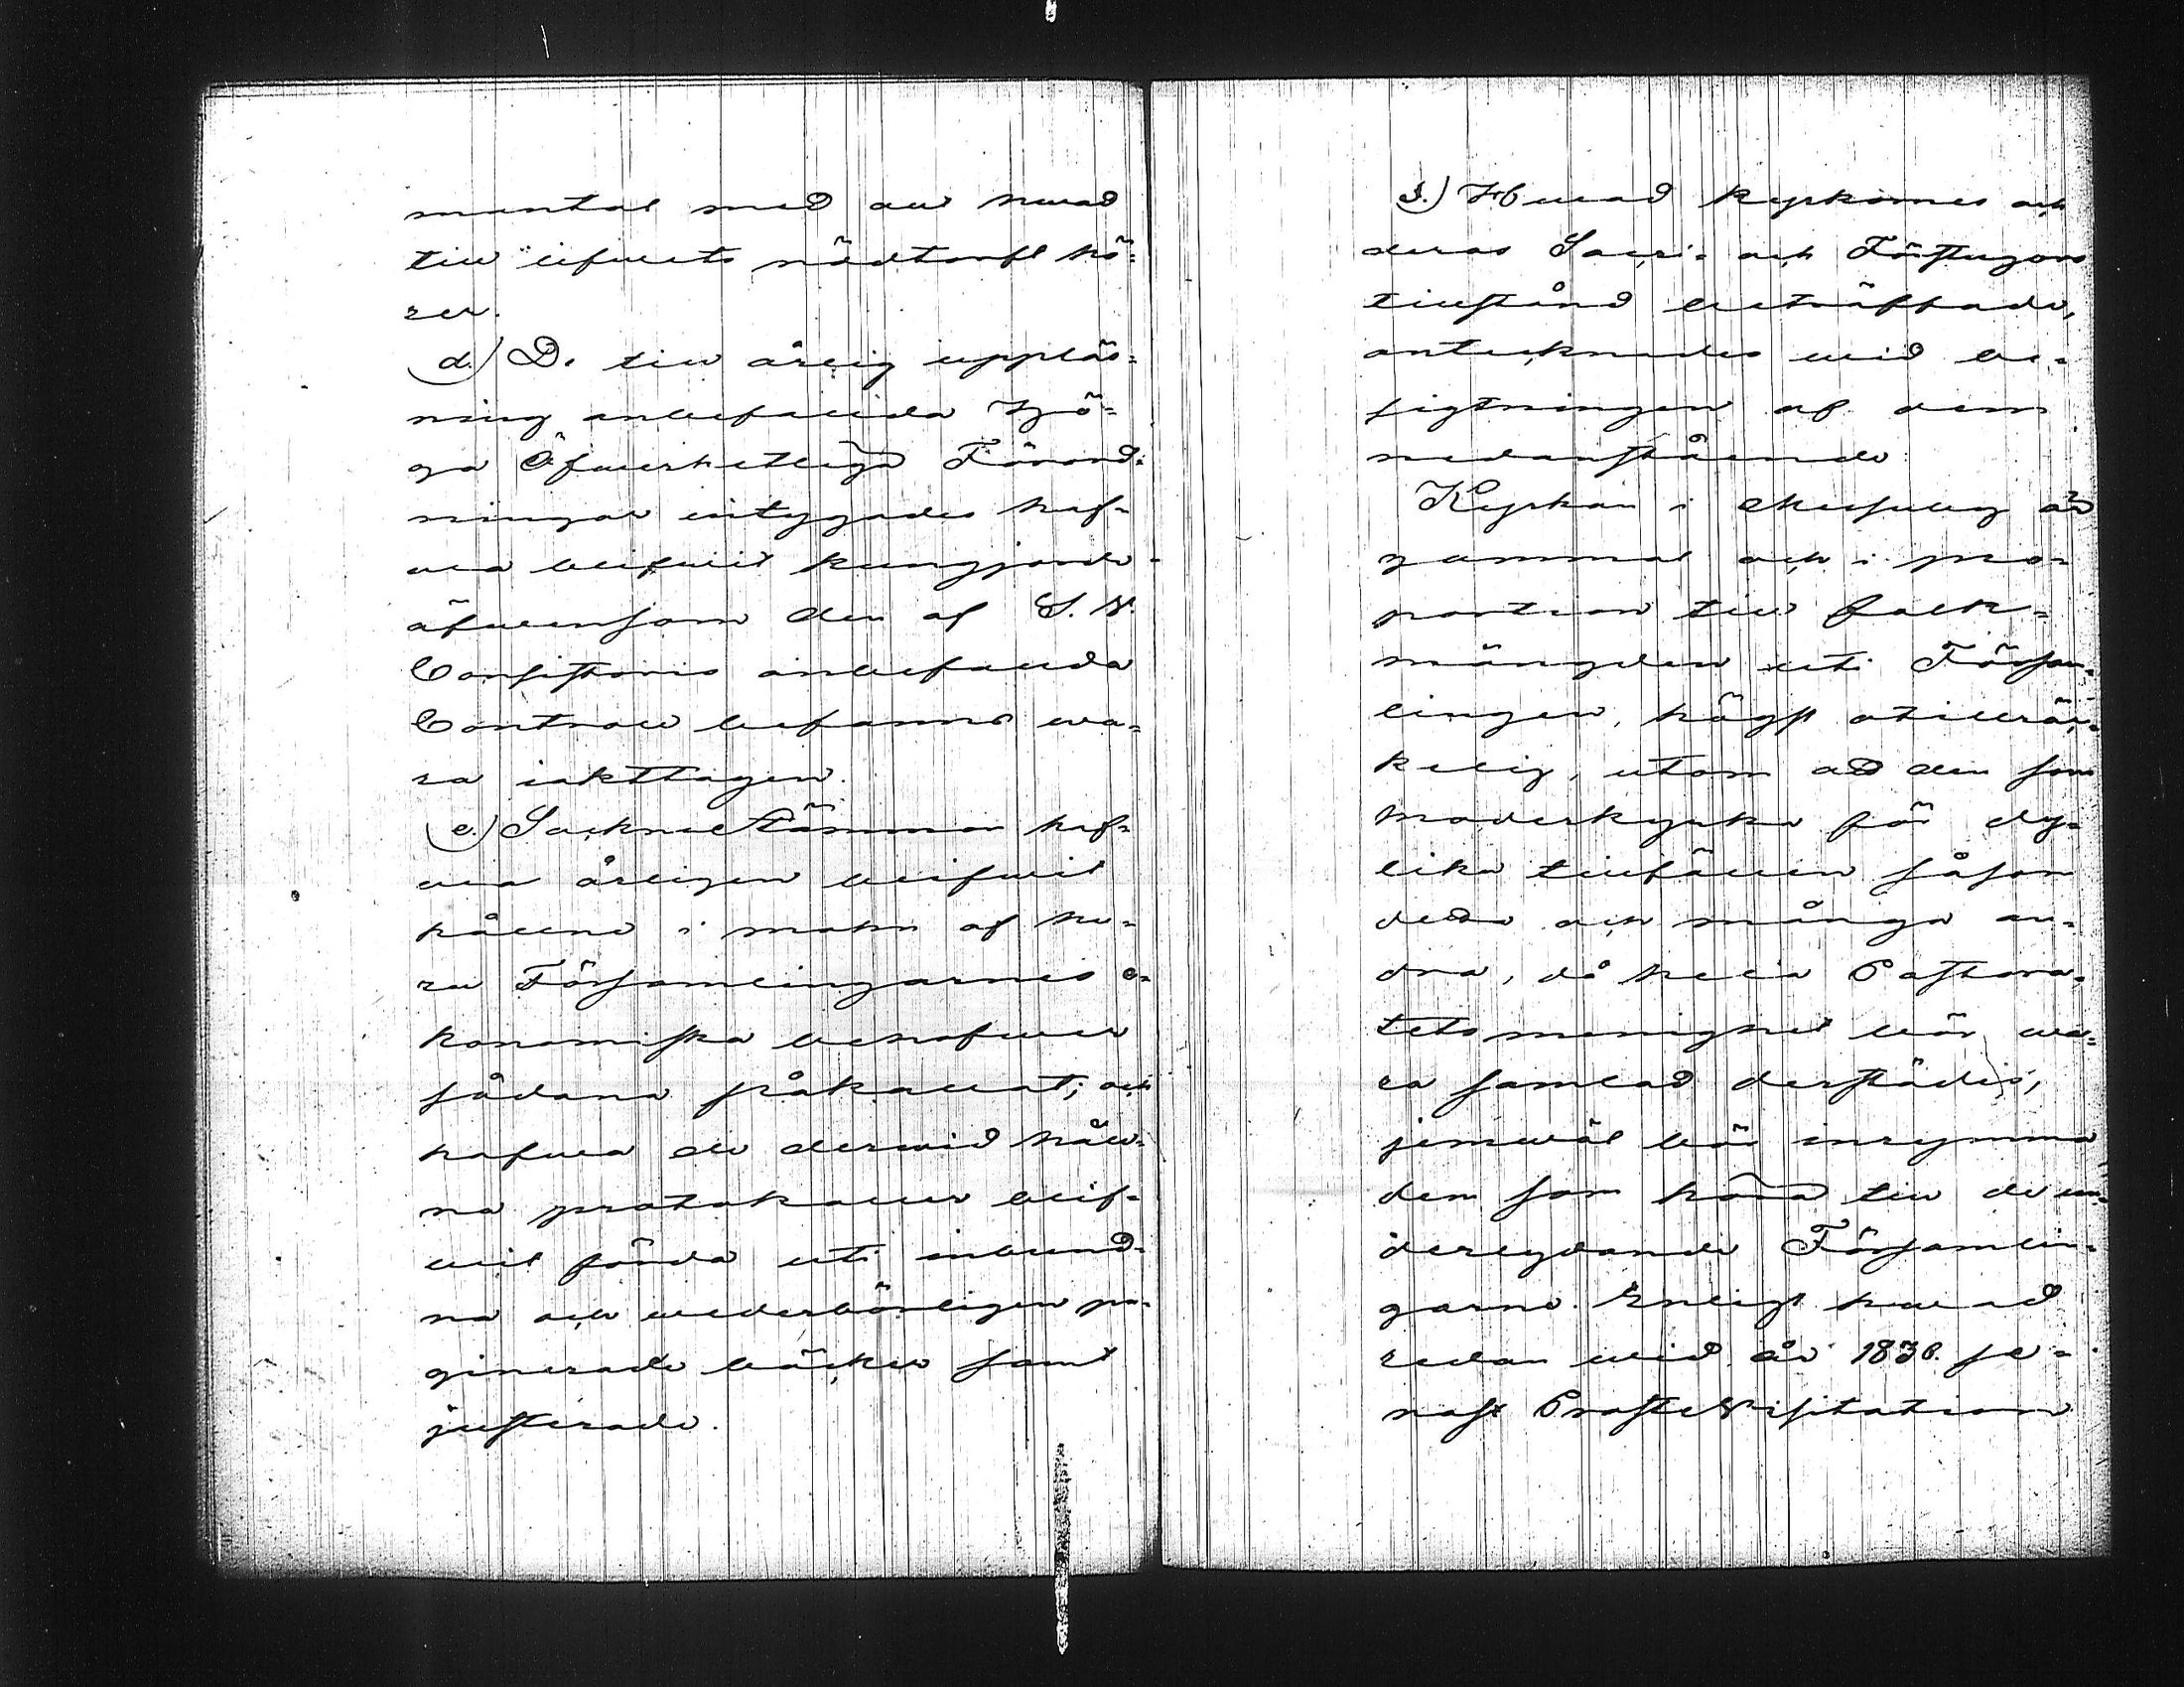 mentat med all hwad
till lifwets nödtorft hö=
rer.
d.) De till årlig uppläs=
ning anbefallda Hö=
ga Öfwerhetliga Förord=
ningar intygades haf=
wa blifwit kungjorde
äfwensom den af S. V.
Consistorio anbefallda
Controll befanns wa=
ra iakttagen.
e.) Sockne Stämmor haf=
wa årligen blifwit
hållne i mohn af hu=
ru Församlingarnes e=
konomiska behofwer
sådana påkallat; och
hafwa de derwid håll=
na protokoller blif=
wit förda uti inbund=
na och wederbörligen pa=
ginerade böcker samt
justerade.
3.) Hwad kyrkornes och
deras Sacri= och Förstugors
tillstånd beträffade,
antecknades wid be=
sigtningen af dem
nedanstående:
Kyrkan i är
gammal och i pro=
portion till folk=
mängden uti Försam=
lingen, högst otillräc=
kelig, utom att den som
moderkyrka för dy=
lika tillfällen såsom
detta och många an=
dra, då hela Pastora=
tets menighet bör wa=
ra samlad derstädes,
jemwäl bör inrymma
dem som höra till de un=
derlydande Församlin=
garne. Enligt hwad
redan wid år 1836 se=
nast Proste Visitation